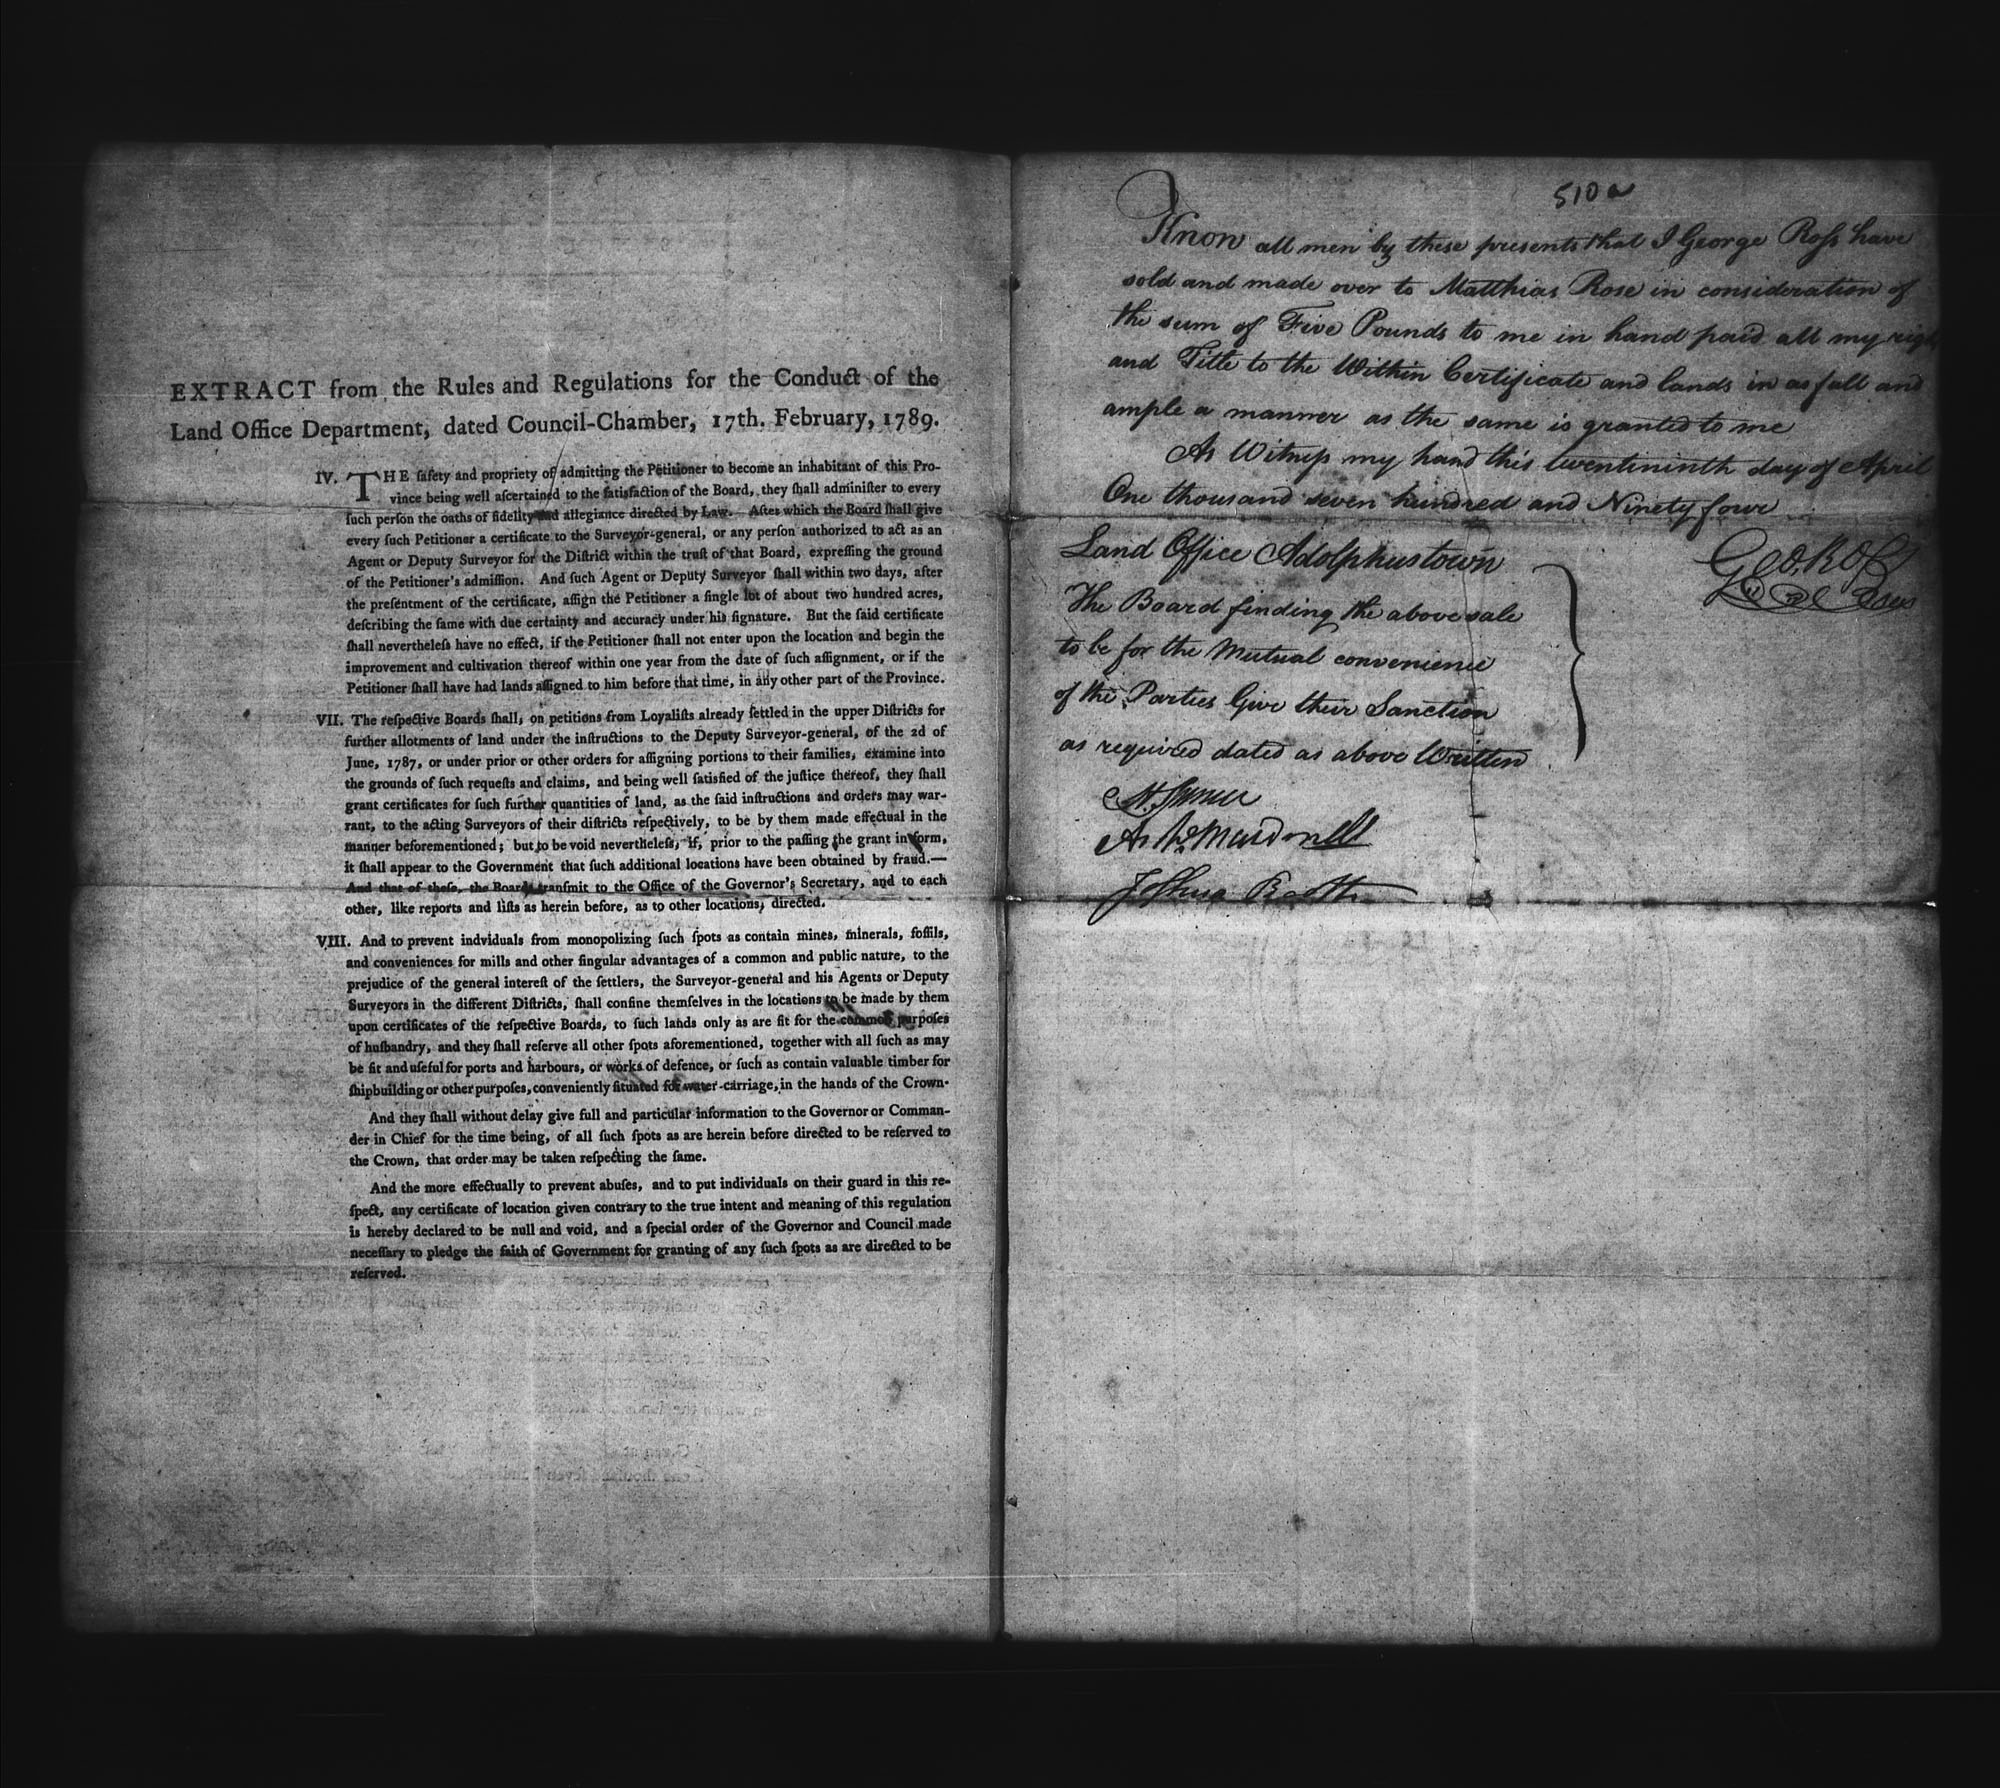 EXTRACT from the Rules and Regulations for the Conduct of the
Land Office Department, dated Council-Chamber, 17th. February, 1789.
IV. THE ſafety and propriety of admitting the Petitioner to become an inhabitant of this Pro-
vince being well aſcertained to the ſatisfaction of the Board, they ſhall adminiſter to every
ſuch perſon the oaths of fidelity and allegiance directed by Law. After which the Board ſhall give
every ſuch Petitioner a certificate to the Surveyor-general, or any perſon authorized to act as an
Agent or Deputy Surveyor for the Diſtrict within the truſt of that Board, expreſſing the ground
of the Petitioner's admiſſion. And ſuch Agent or Deputy Surveyor ſhall within two days, after
the preſentment of the certificate, aſſign the Petitioner a ſingle lot of about two hundred acres,
deſcribing the ſame with due certainty and accuracy under his ſignature. But the ſaid certificate
ſhall nevertheleſs have no effect, if the Petitioner ſhall not enter upon the location and begin the
improvement and cultivation thereof within one year from the date of ſuch aſſignment, or if the
Petitioner ſhall have had lands aſſigned to him before that time, in any other part of the Province.
VII. The reſpective Boards ſhall, on petitions from Loyaliſts already ſettled in the upper Diſtricts for
further allotments of land under the inſtructions to the Deputy Surveyor-general, of the 2d of
June, 1787, or under prior or other orders for aſſigning portions to their families, examine into
the grounds of ſuch requeſts and claims, and being well ſatisfied of the juſtice thereof, they ſhall
grant certificates for ſuch further quantities of land, as the ſaid inſtructions and orders may war-
rant, to the acting Surveyors of their diſtricts reſpectively, to be by them made effectual in the
manner beforementioned; but to be void nevertheleſs, if, prior to the paſſing the grant in form,
it ſhall appear to the Government that ſuch additional locations have been obtained by fraud.—
And that of theſe, the Boards tranſmit to the Office of the Governor's Secretary, and to each
other, like reports and liſts as herein before, as to other locations, directed.
VIII. And to prevent indviduals from monopolizing ſuch ſpots as contain mines, minerals, foſſils,
and conveniences for mills and other ſingular advantages of a common and public nature, to the
prejudice of the general intereſt of the ſettlers, the Surveyor-general and his Agents or Deputy
Surveyors in the different Diſtricts, ſhall confine themſelves in the locations to be made by them
upon certificates of the reſpective Boards, to ſuch lands only as are fit for the common purpoſes
of huſbandry, and they ſhall reſerve all other ſpots aforementioned, together with all ſuch as may
be fit and uſeful for ports and harbours, or works of defence, or ſuch as contain valuable timber for
ſhipbuilding or other purpoſes, conveniently ſituated for water-carriage, in the hands of the Crown.
And they ſhall without delay give full and particular information to the Governor or Comman-
der in Chief for the time being, of all ſuch ſpots as are herein before directed to be reſerved to
the Crown, that order may be taken reſpecting the ſame.
And the more effectually to prevent abuſes, and to put individuals on their guard in this re-
ſpect, any certificate of location given contrary to the true intent and meaning of this regulation
is hereby declared to be null and void, and a ſpecial order of the Governor and Council made
neceſſary to pledge the faith of Government for granting of any ſuch ſpots as are directed to be
reſerved.
510a
Know all men by these presents that I George Roſs have
sold and made over to Matthias Rose in consideration of
the sum of Five Pounds to me in hand paid all my righ
and Title to the Within Certificate and lands in as full and
ample a manner as the same is granted to me
As Witneſs my hand this twentininth day of April
One thousand seven hundred and Ninety four
Geo. Roſs
Land Office Adolphustown
The Board finding the above sale
to be for the Mutual convenience
of the Parties Give their Sanction
as required dated as above Written
Ar. McDonell
Joshua Booth